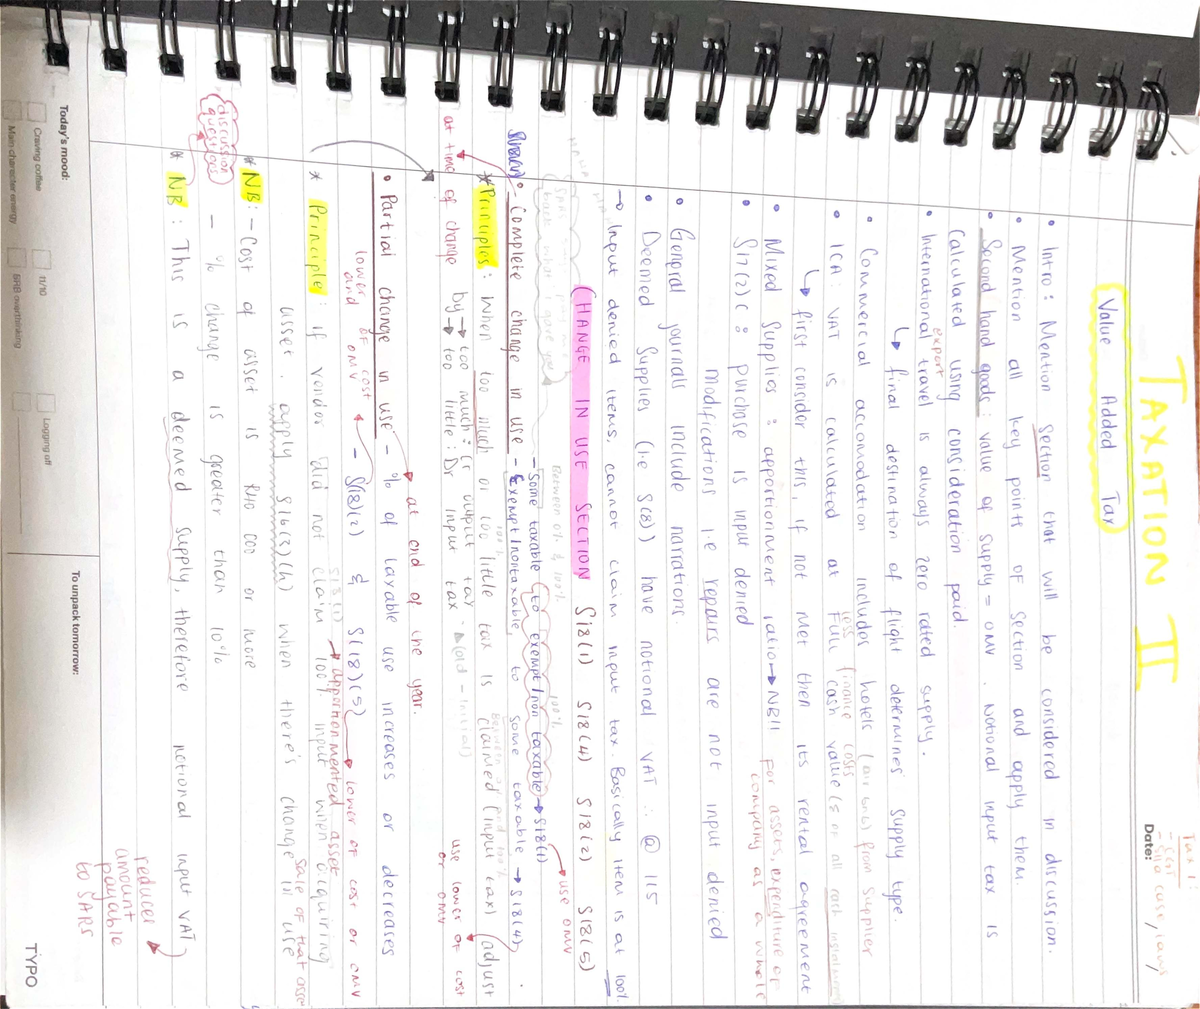 TAXATION II
Tax 1:
case / laws
Date: / /
Value Added Tax
• Intro: Mention section that will be considered in discussion.
• Mention all key points of section and apply them.
• Second hand goods: value of supply = OMV. Notional input tax is
calculated using consideration paid.
export
• International travel is always zero rated supply.
↳ final desination of flight determines supply type.
• Commercial accomodation includes hotels (air bnb's) from supplier
less finance costs
• ICA: VAT is calculated at Full cash value (s of all cash instalments)
↳ first consider this, if not met then its rental agreement
• Mixed supplies: apportionment ratio → NB!! for assets, expenditure or
company as a whole
• S17(2)c: purchase is input denied
Modifications i.e repairs are not input denied
• General journals include narrations.
• Deemed supplies (i.e S(8)) have notional VAT ∴ @ 115
→ Input denied items, cannot claim input tax. Basically item is at 100%
CHANGE IN USE SECTION S18(1) S18(4) S18(2) S18(5)
Between 0% & 100% 100%
→ use OMV
- Some taxable (to exempt/non taxable) → S18(1)
• Complete change in use - Exempt/nontaxable, to some taxable → S18(4).
100% Between 0% and 100%
* Principles: When too much or too little tax is claimed (input tax) (adjust
at time of change
by → too much: Cr output tax
by → too little: Dr input tax
use lower of cost
or OMV
→ at end of the year.
• Partial change in use - % of taxable use increases or decreases
lower of cost
and OMV
- S(18)(2) & S(18)(5) → lower of cost or OMV
→ apportionmented asset
* Principle: if vendor did not claim 100% input when acquiring
sale of that asset
asset. apply S16(3)(h) when there's change in use
* NB: - Cost of asset is R40 000 or more
- % change is greater than 10%
discussion
questions
* NB: This is a deemed supply, therefore notional input VAT)
reducer
amount
payable
to SARS
Today's mood:
Craving coffee
11/10
Logging off
Main character energy
BRB overthinking
To unpack tomorrow:
TYPO